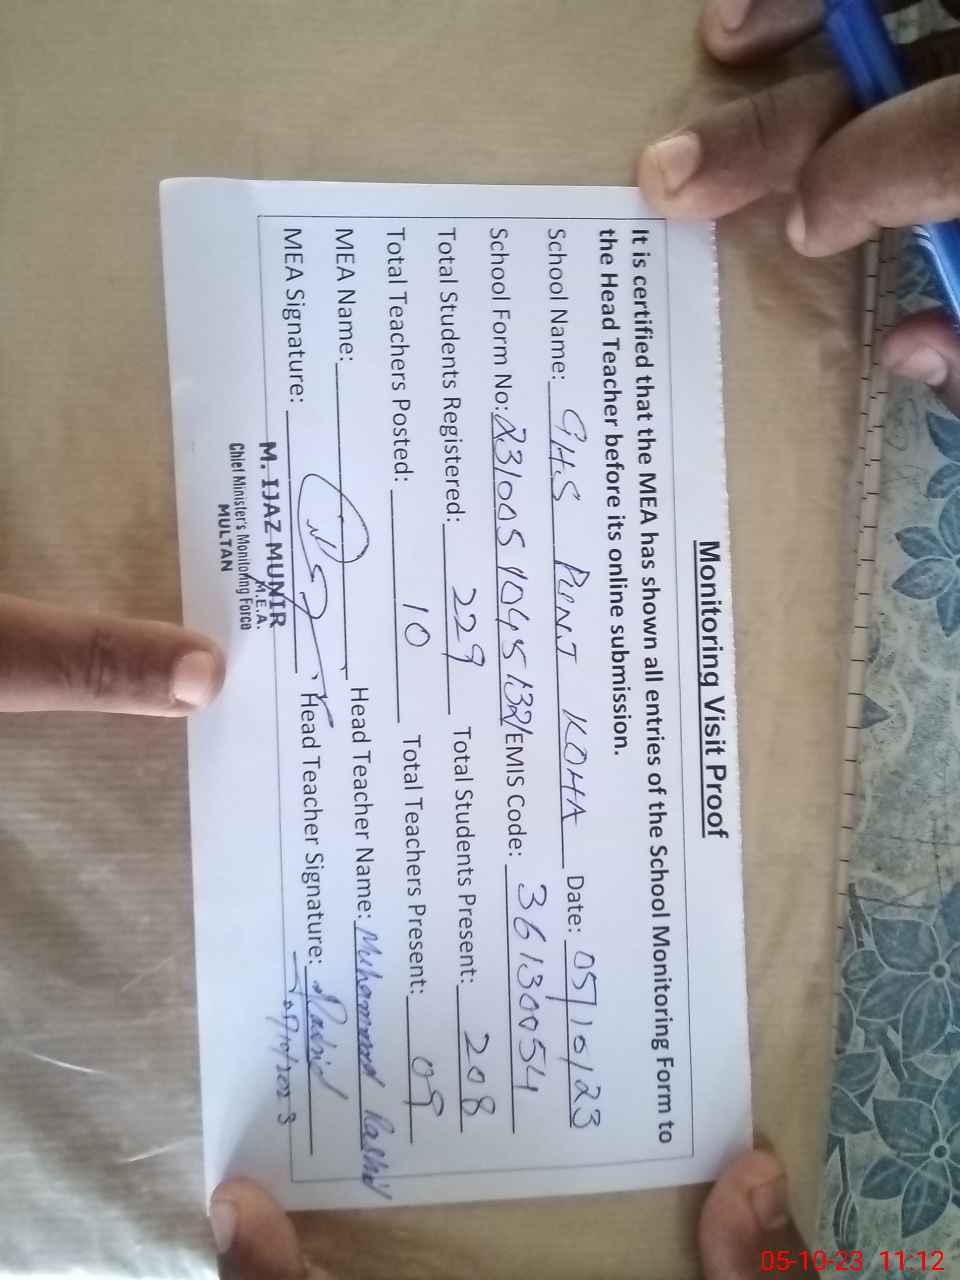 Monitoring Visit Proof
It is certified that the MEA has shown all entries of the School Monitoring Form to
the Head Teacher before its online submission.
School Name: GHS PUNJ KOHA Date: 05/10/23
School Form No: EMIS Code: 36130054
Total Students Registered: 229 Total Students Present: 208
Total Teachers Posted: 10 Total Teachers Present: 09
MEA Name: Head Teacher Name: Muhammad Rashid
MEA Signature: Head Teacher Signature: Rashid
05/10/2023
M. IJAZ MUNIR
M.E.A.
Chief Minister's Monitoring Force
MULTAN
05-10-23 11:12